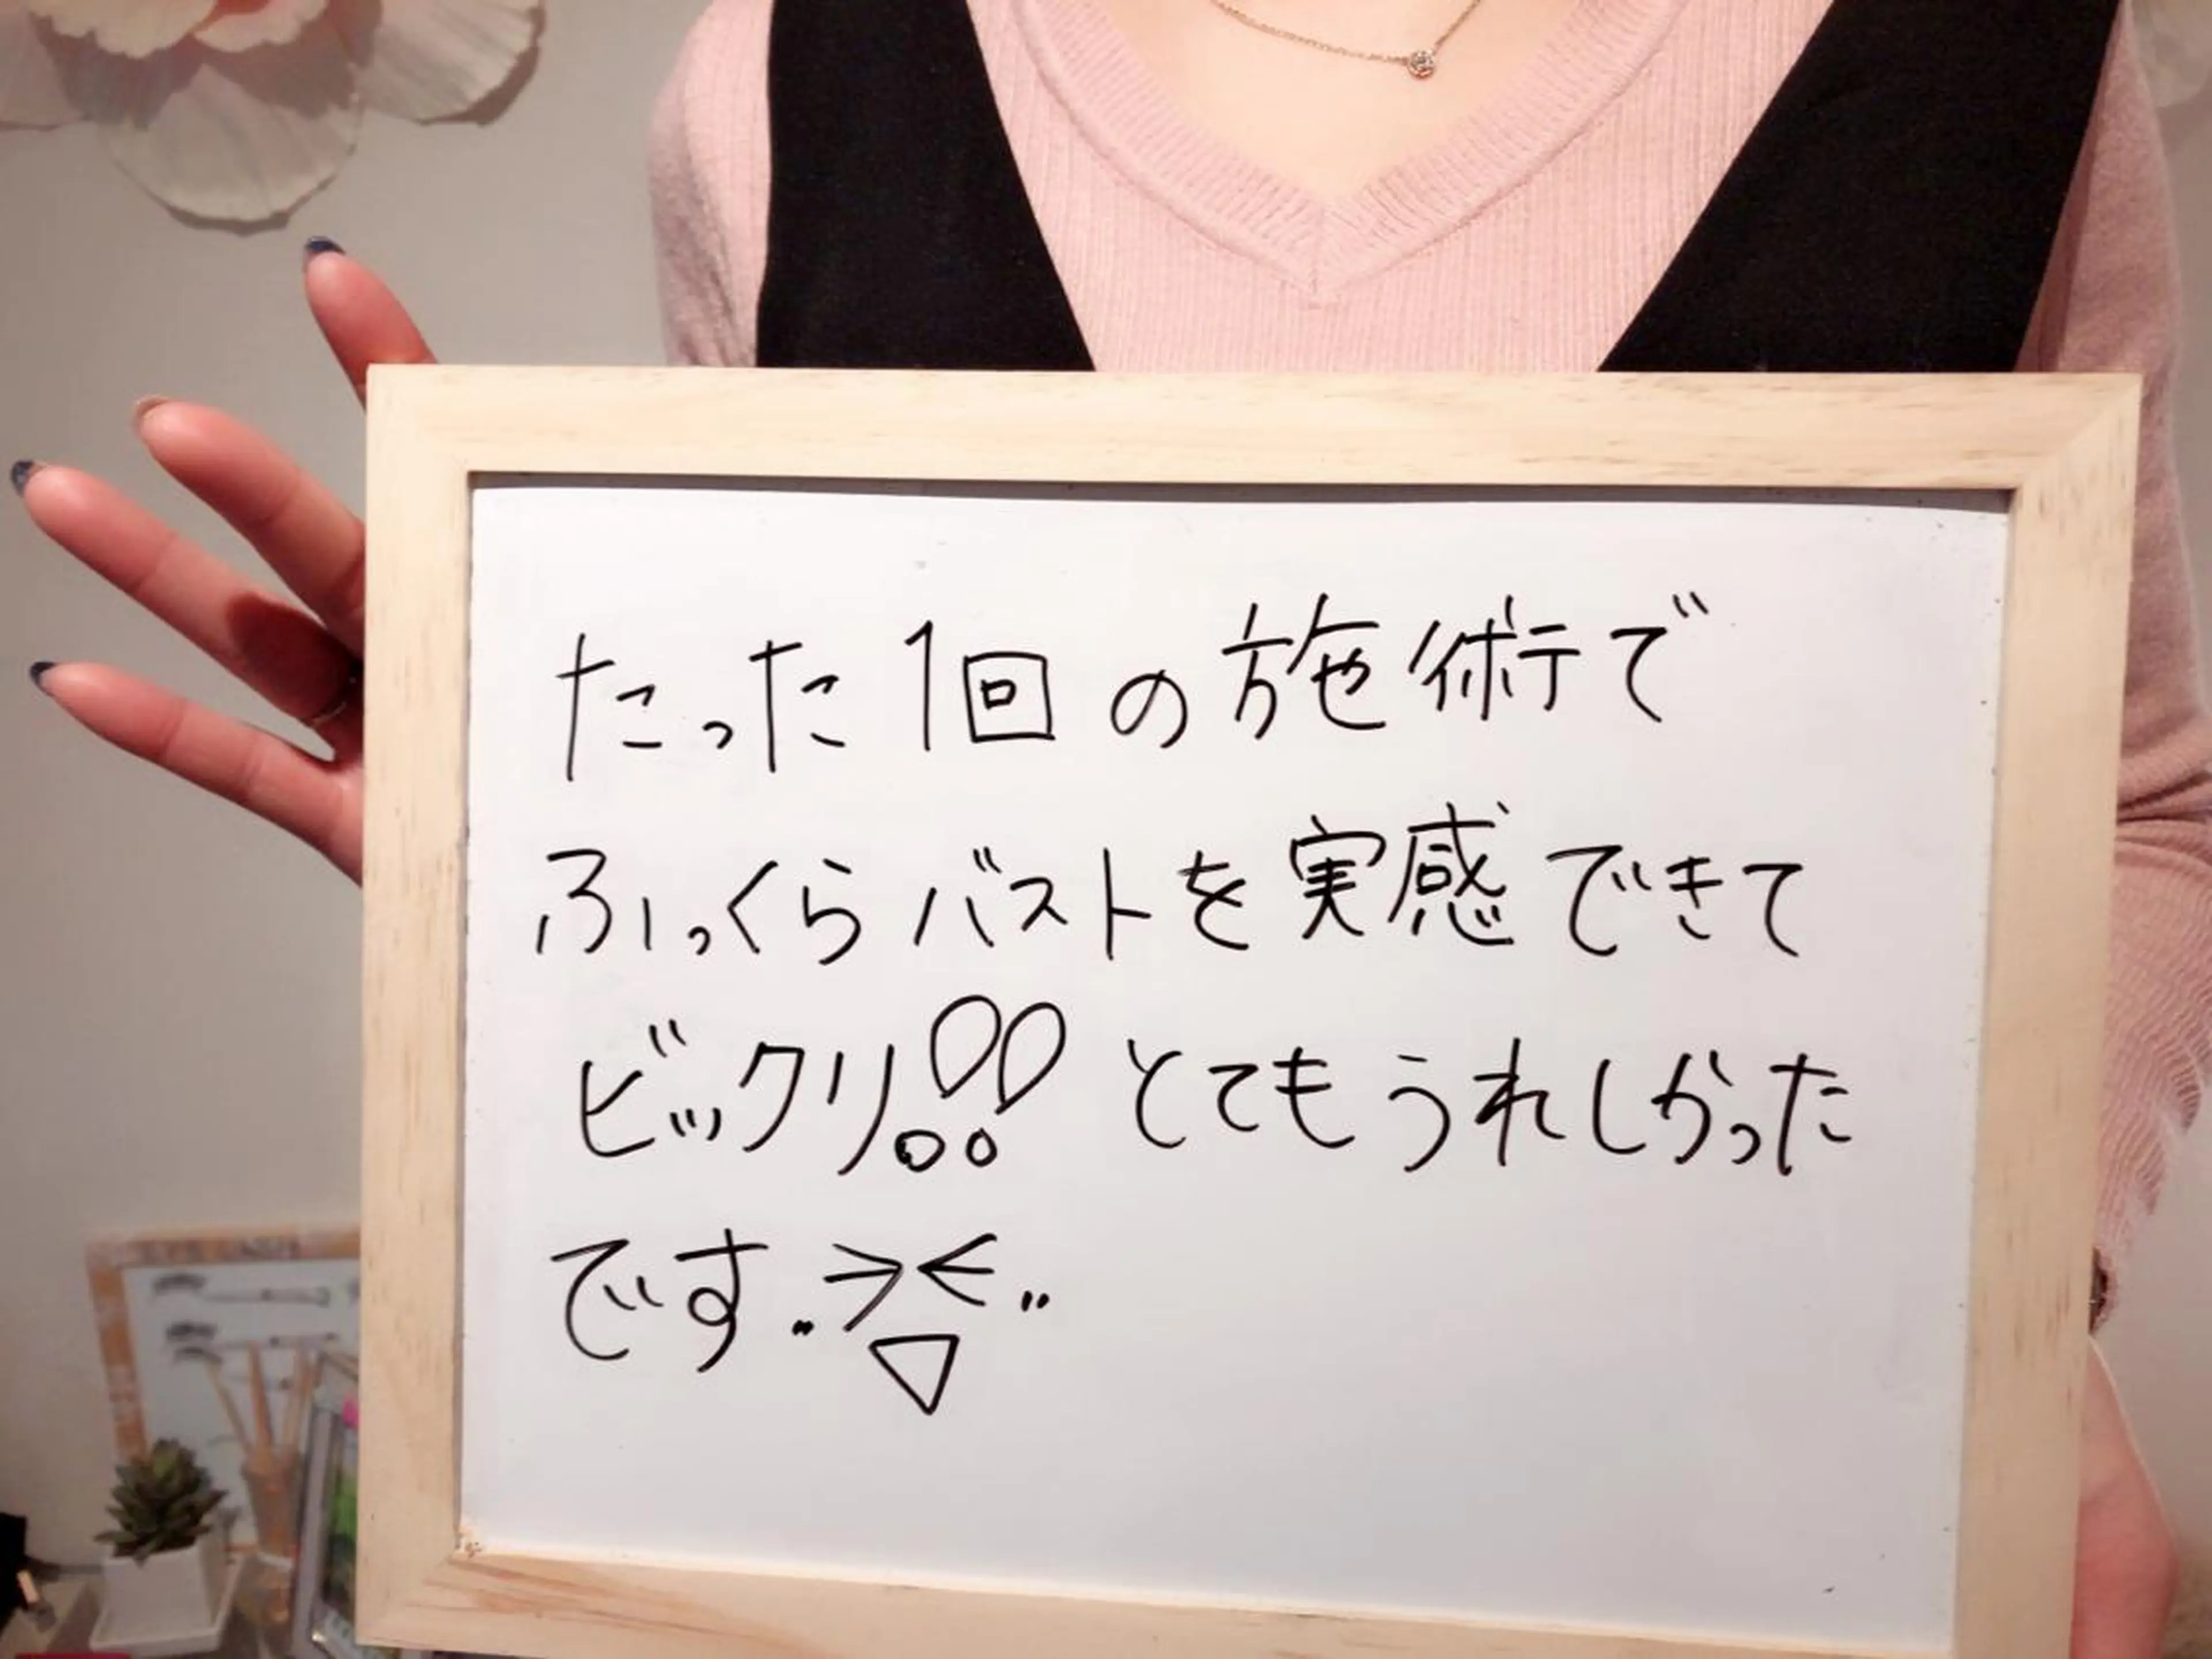 たった1回の施術で
ふっくらバストを実感できて
ビックリ!! とてもうれしかった
です